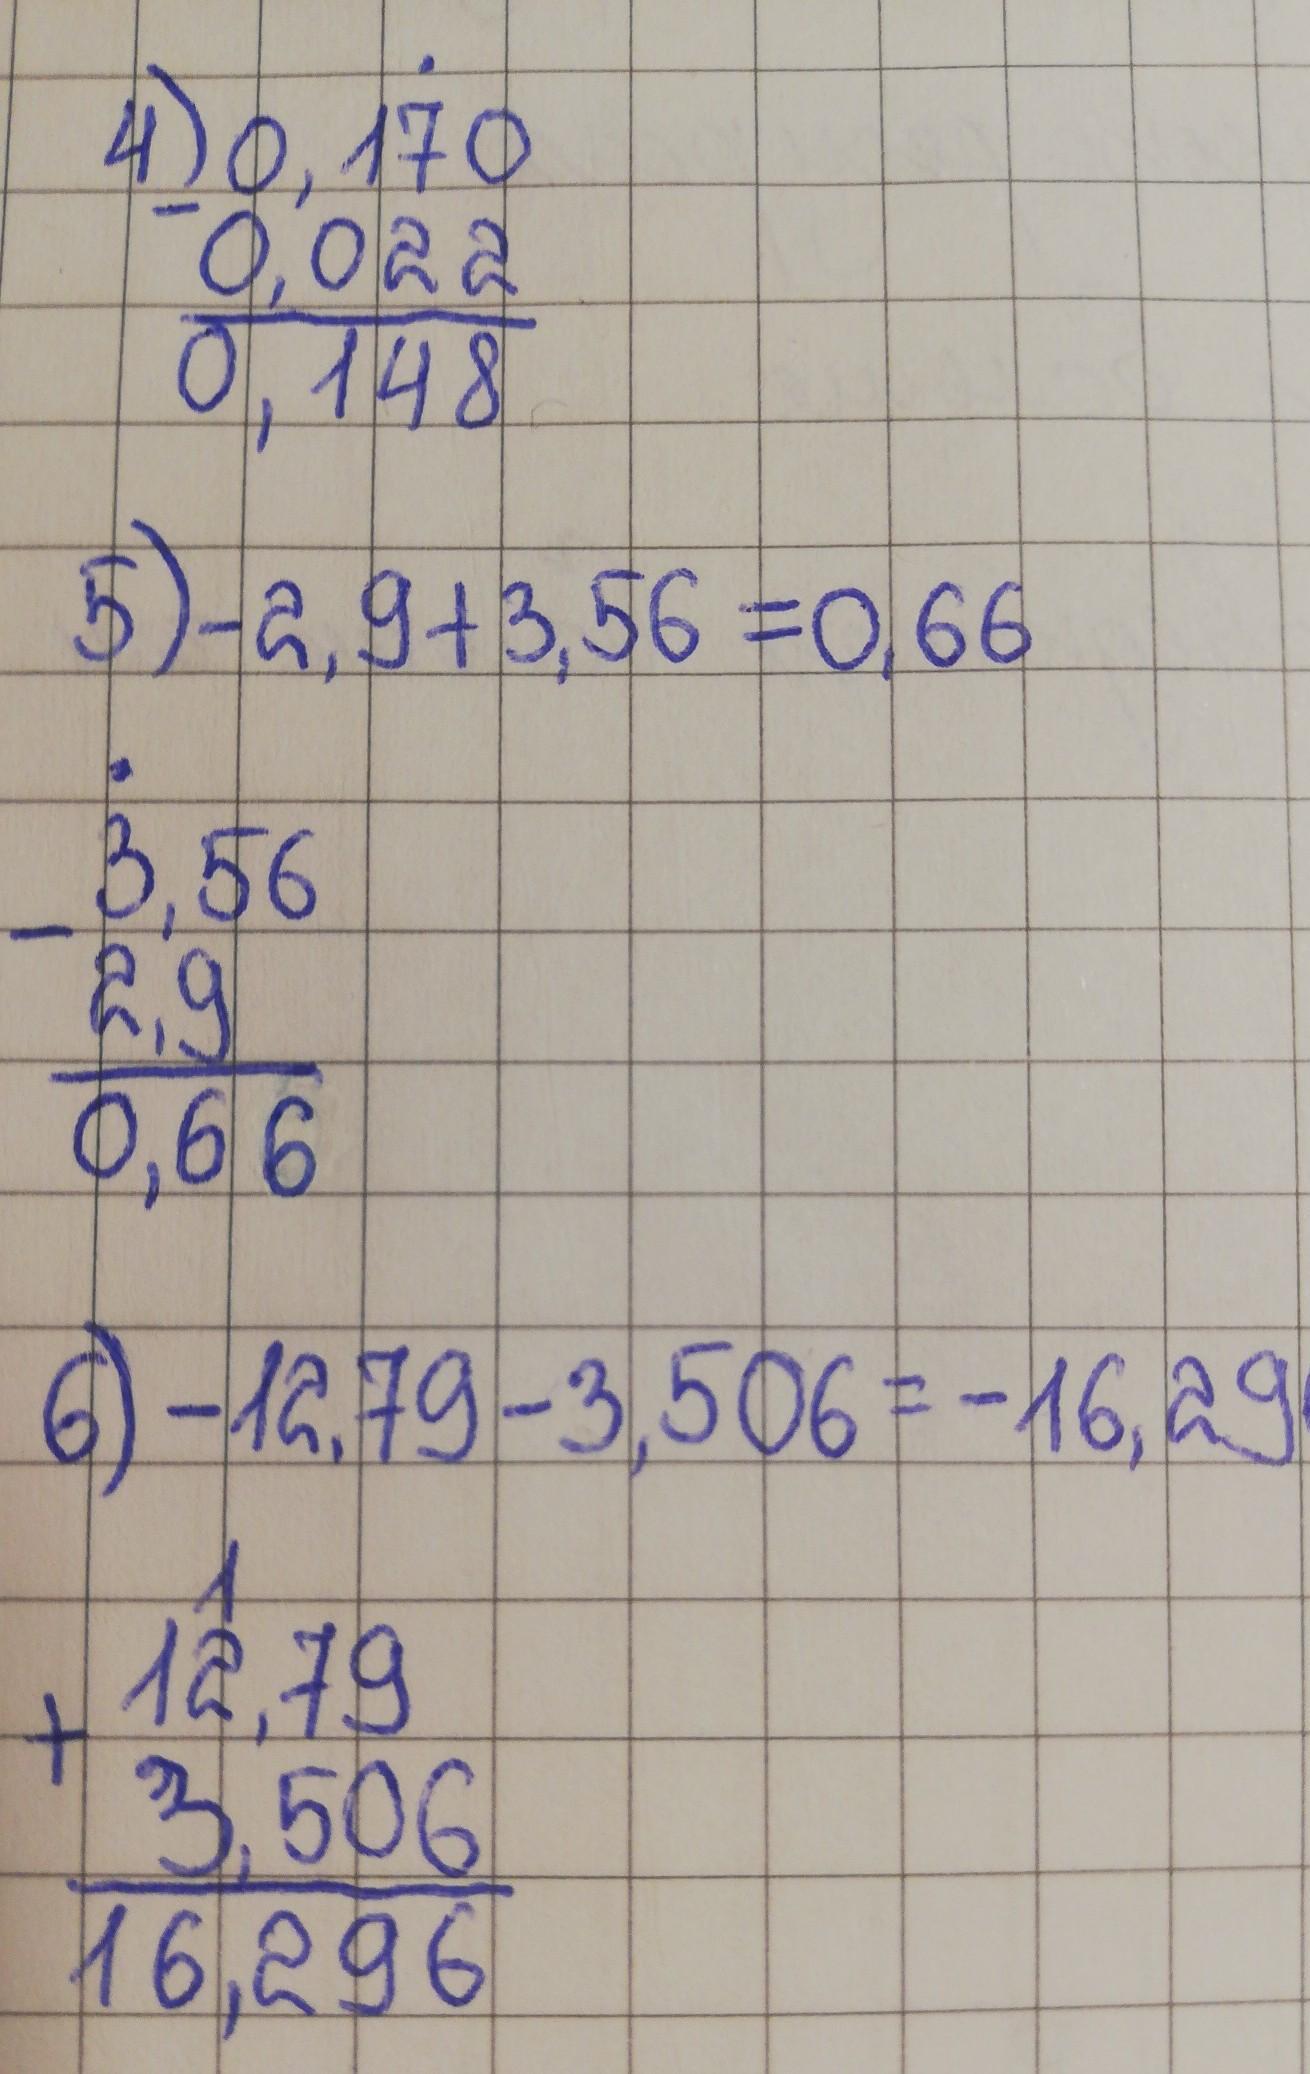 4) 0,170
- 0,022
0,148
5) -2,9+3,56=0,66
3,56
- 2,9
0,66
6) -12,79-3,506=-16,29
1
12,79
+ 3,506
16,296